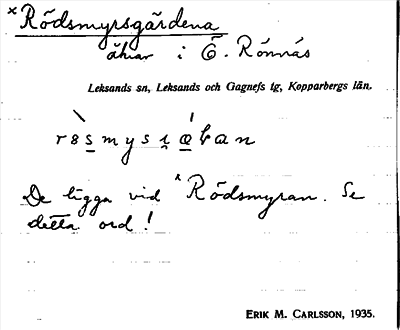 ×Rödsmyrsgärdena
åkrar i Ö. Rönnäs
Leksands sn, Leksands och Gagnefs tg, Kopparbergs län.
De ligga vid ×Rödsmyran. Se
detta ord!
ERIK M. CARLSSON, 1935.